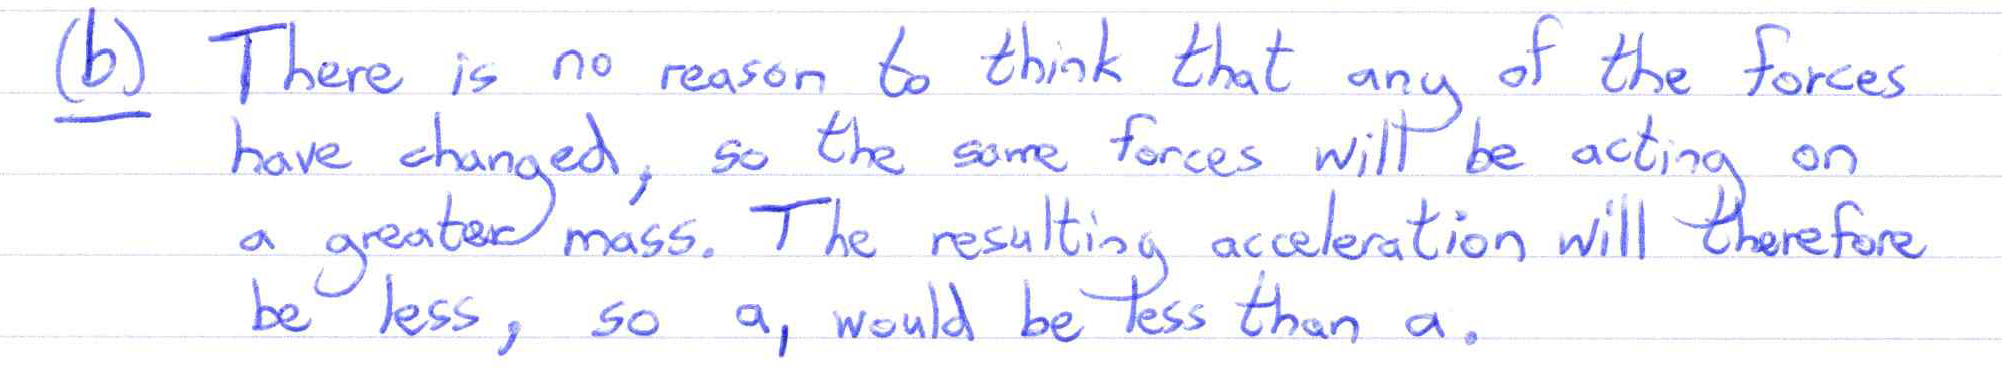 (b) There is no reason to think that any of the forces
have changed, so the same forces will be acting on
a greater mass. The resulting acceleration will therefore
be less, so a₁ would be less than a.